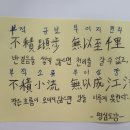 부적규보 무이지천리
不積蹞步 無以至千里
반 걸음을 쌓지 않으면 천리를 갈 수 없고,
부적소류 무이성강하
不積小流 無以成江河
작은 흐름이 모이지 않으면 강을 이루지 못한다.